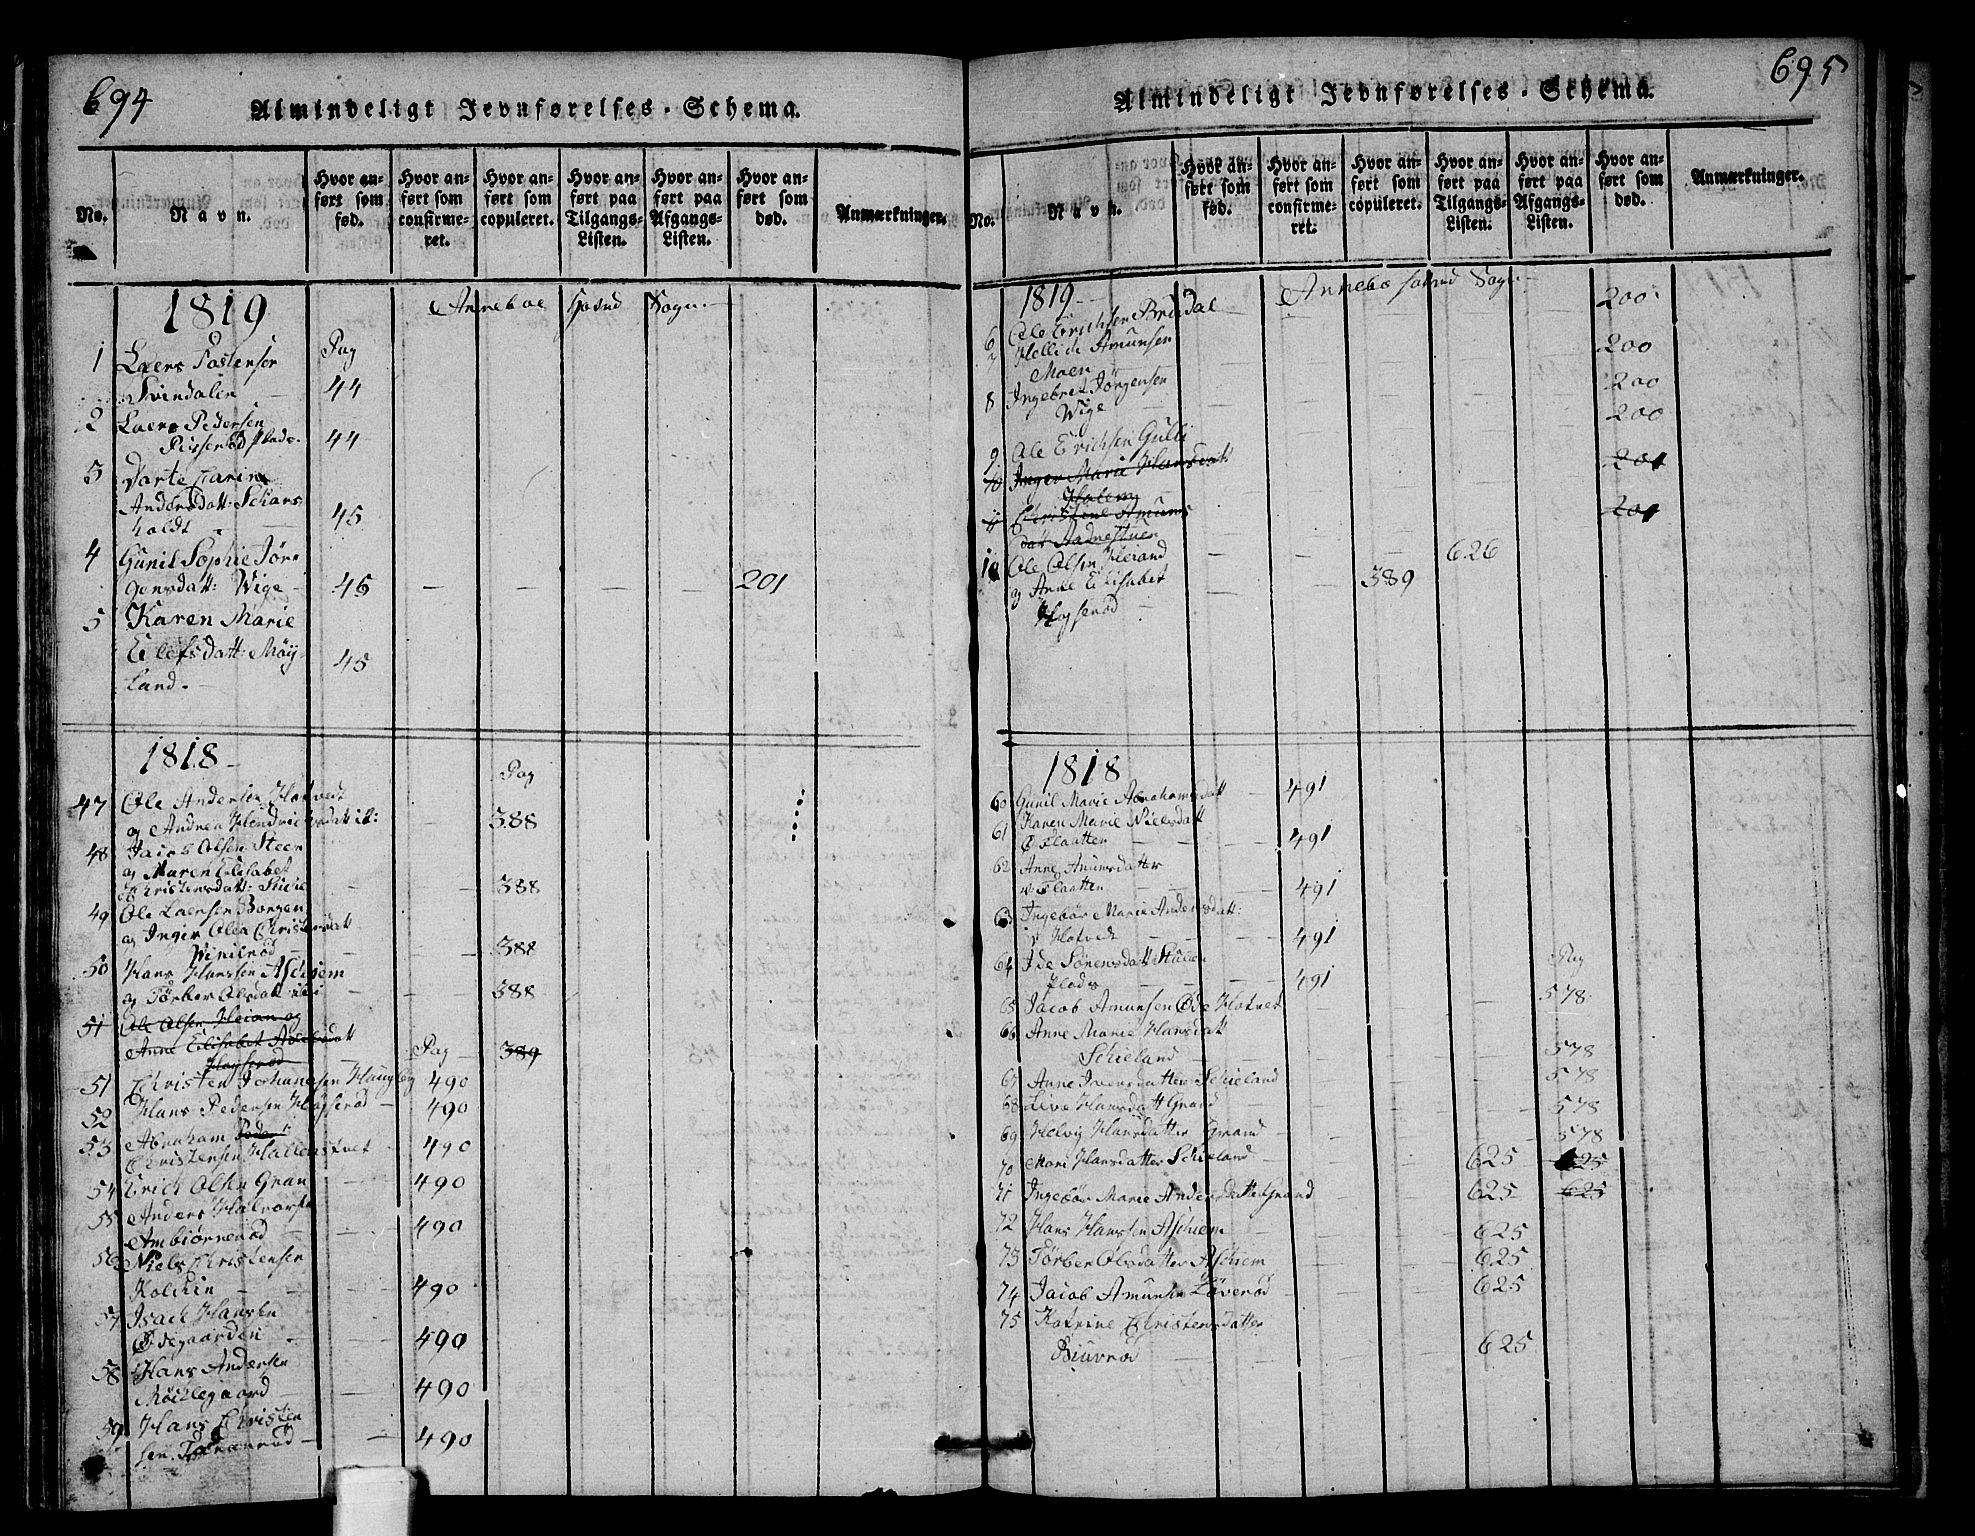 694
Almindeligt Jevnførelses-Schema.
No.
Navn.
Hvor anført som fød.
Hvor anført som confirmeret.
Hvor anført som copuleret.
Hvor anført paa Tilgangs-Listen.
Hvor anført paa Afgangs-Listen.
Hvor anført som død.
Anmærkninger.
1819 Anneboe Sogn.
Pag
1 Laers
Svindalen 44
2 Laers Pedersen
Plads. 44
3 Dorte
Andersdatt: 45
holdt
4 Gunil Sophie Jør-
gensdatt: Wige 45 — — — — 201
5 Karen Marie
Elefsdatt: Möy- 45
land.
1818
Pag
47 Ole Andersen Hotvedt
og Andrea Hendrichsdatt 388
48 Jacob Olsen Steen
og Maren Elisabet
Christensdatt: 388
49 Ole Laersen Borgen
og Inger Olea Christensdatt
388
50 Hans Hanssen Aschiem
og Tørber Olsdatt 388
51 Ole Olsen Heian og
Anne Elisabet
Høyserød Pag 389
51 Christen Johannesen Haugby 490
52 Hans Pedersen Høyserød 490
53 Abraham
Christensen 490
54 Erich Olsen Gran 490
55 Anders Halvorsen
Ambiørnerød 490
56 Niels Christensen
490
57 Isach Hansen
Ødegaarden 490
58 Hans Andersen
490
59 Hans Christen
sen 490
695
Almindeligt Jevnførelses-Schema.
No.
Navn.
Hvor anført som fød.
Hvor anført som confirmeret.
Hvor anført som copuleret.
Hvor anført paa Tilgangs-Listen.
Hvor anført paa Afgangs-Listen.
Hvor anført som død.
Anmærkninger.
1819 Annebo Sogn
6 Ole Erichsen 200
7 Amunsen
Moen 200
8 Ingebret Jørgensen
Wige 200
9 Ole Erichsen Gulli 200
10 Inger Marie Hansdatt
201
11 Christine Amuns
datt 201
10 Ole Olsen Heiand 626
og Anne Elisabet 389
Høyserød
1818
60 Gunil Marie Abrahamsdatt 491
61 Karen Marie Nielsdatt
Flaatten 491
62 Anne Amunsdatter
Flaatten 491
63 Ingebør Marie Andersdatt:
Hotvedt 491
Pag
64 Ide Sørensdatt:
Plads 491
65 Jacob Amunsen Øde Hotvet 578
66 Anne Marie Hansdatt
Schieland 578
67 Anne Iversdatter Schieland 578
68 Live Hansdatt Grand 578
69 Helvig Hansdatter Grand 578
70 Mari Hansdatter Schieland 625 625
71 Ingebør Marie Andersdatter Grand 625 625
72 Hans Hanssen Aschiem 625
73 Tørber Olsdatter Aschiem 625
74 Jacob Amunsen Løverød 625
75 Katrine Christensdatter
625